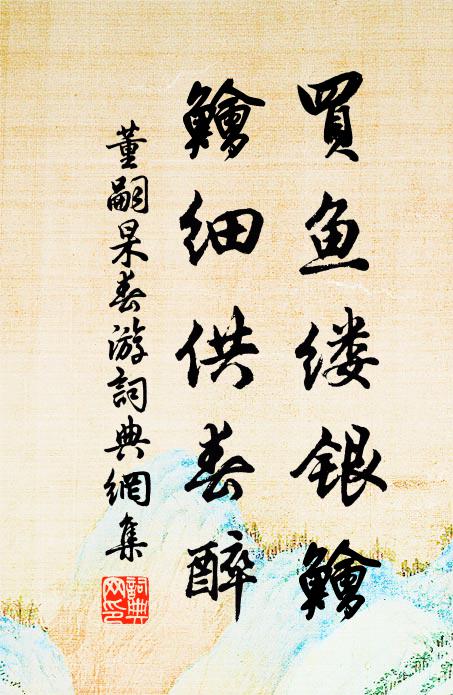 買鱼缕银鱠
鱠细供春醉
董嗣杲春游詞典網集
詞典网印